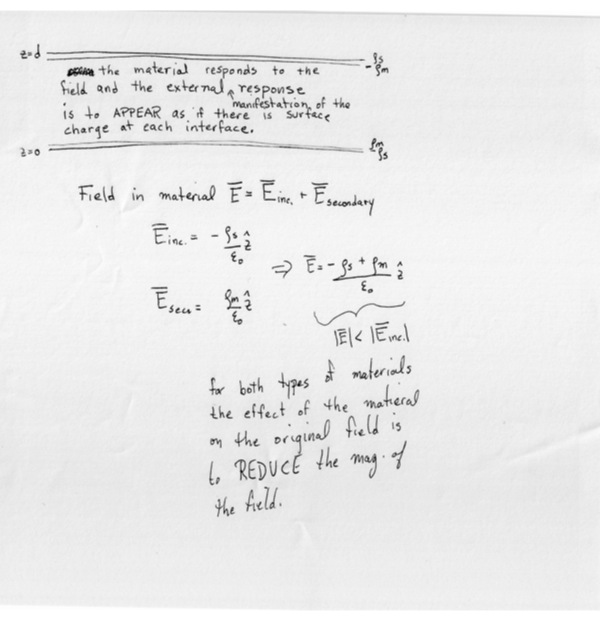 z=d ρs
-ρm
the material responds to the
field and the external response
manifestation of the
is to APPEAR as if there is surface
charge at each interface.
z=0 ρm
ρs
Field in material E̅ = E̅inc. + E̅secondary
E̅inc. = - ρs/ε₀ ẑ
⇒ E̅ = - ρs + ρm / ε₀ ẑ
E̅sec = ρm/ε₀ ẑ
|E̅| < |E̅inc.|
for both types of materials
the effect of the matieral
on the original field is
to REDUCE the mag. of
the field.